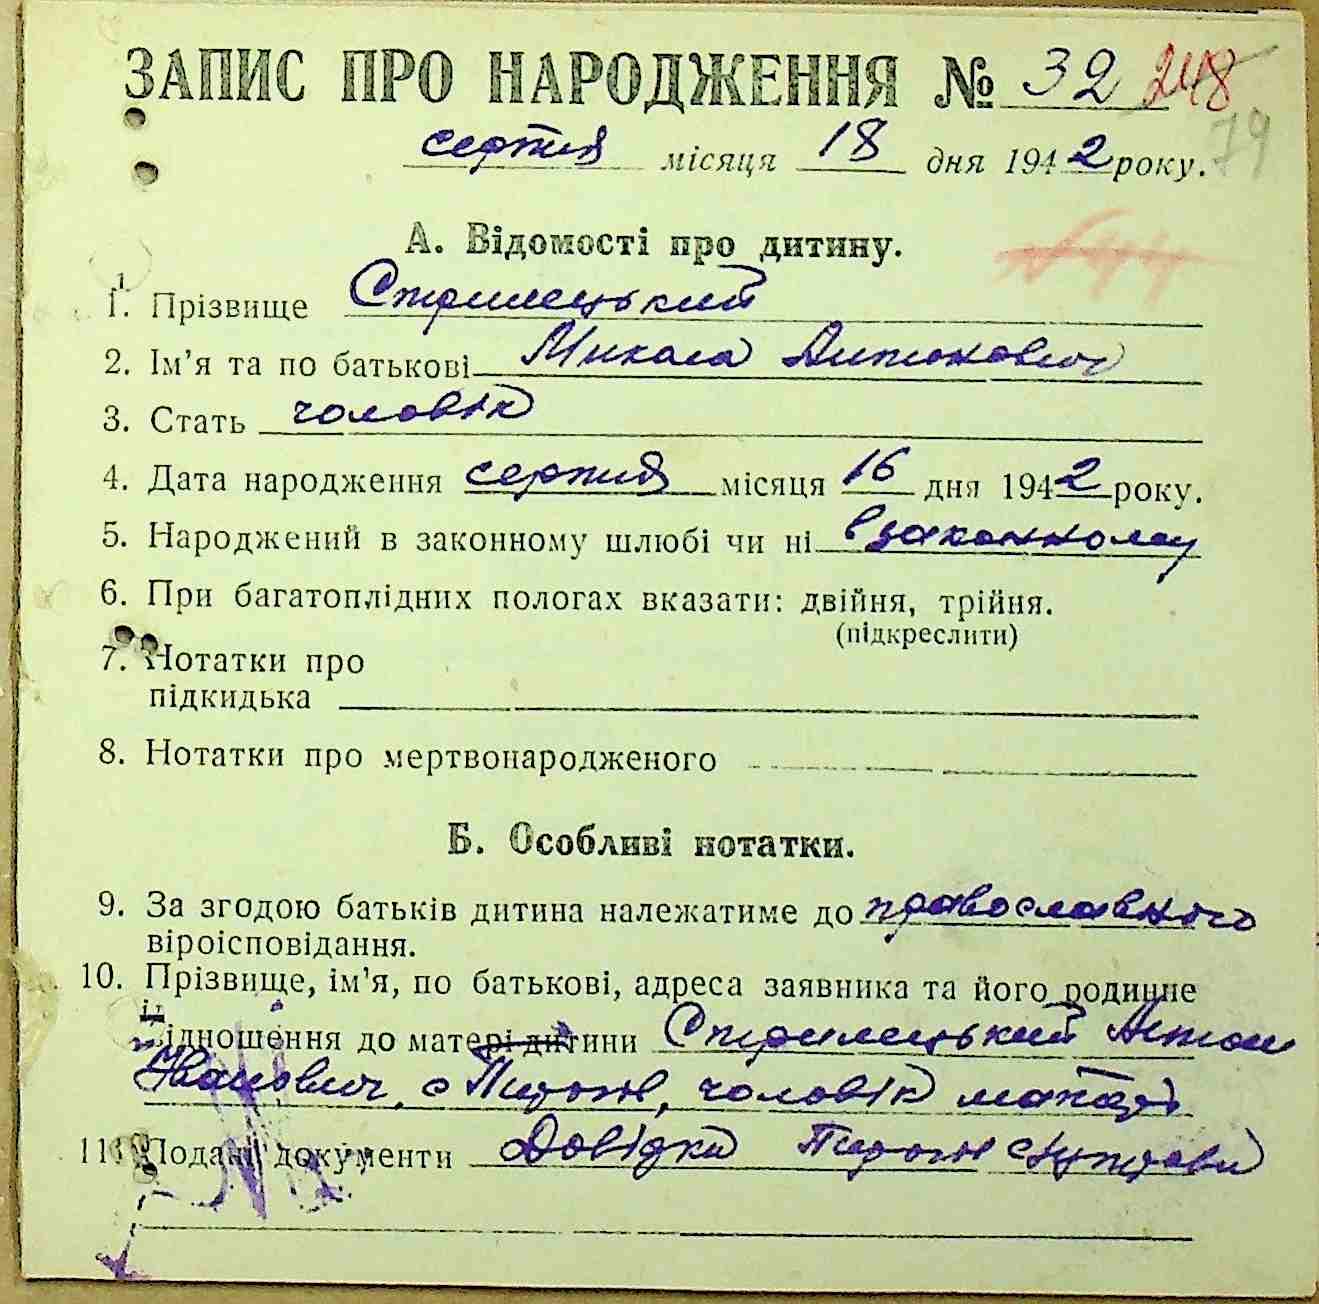 ЗАПИС ПРО НАРОДЖЕННЯ № 32 248
79
серпня місяця 18 дня 1942 року.
А. Відомості про дитину.
1. Прізвище Стрилецький
2. Ім'я та по батькові Микола Антонович
3. Стать чоловік
4. Дата народження серпня місяця 16 дня 1942 року.
5. Народжений в законному шлюбі чи ні в законному
6. При багатоплідних пологах вказати: двійня, трійня.
(підкреслити)
7. Нотатки про
підкидька
8. Нотатки про мертвонародженого
Б. Особливі нотатки.
9. За згодою батьків дитина належатиме до православного
віроісповідання.
10. Прізвище, ім'я, по батькові, адреса заявника та його родинне
відношення до матері дитини Стрилецький Антон
Іванович, с Пирогів, чоловік матері
11. Подані документи Довідка Пирогів